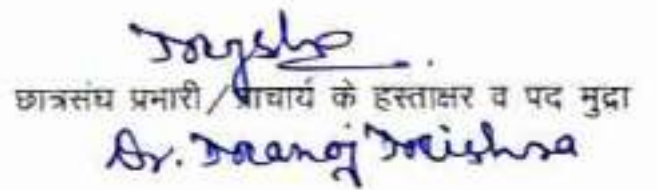 छात्रसंघ प्रभारी/प्राचार्य के हस्ताक्षर व पद मुद्रा
Dr. Manoj Mishra